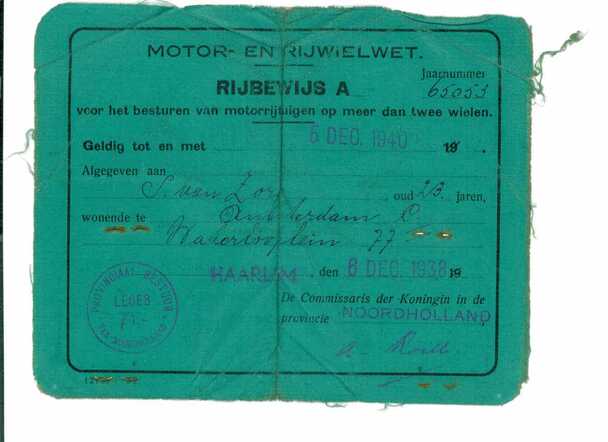 MOTOR- EN RIJWIELWET.
Jaarnummer
RIJBEWIJS A
65053
voor het besturen van motorrijtuigen op meer dan twee wielen.
Geldig tot en met 6 DEC. 1940 19
Afgegeven aan
S. van Zorn oud 23 jaren,
wonende te Amsterdam C.
Waterlooplein 77
HAARLEM, den 6 DEC. 1938 19
PROVINCIAAL BESTUUR
LEGES
De Commissaris der Koningin in de
provincie NOORDHOLLAND,